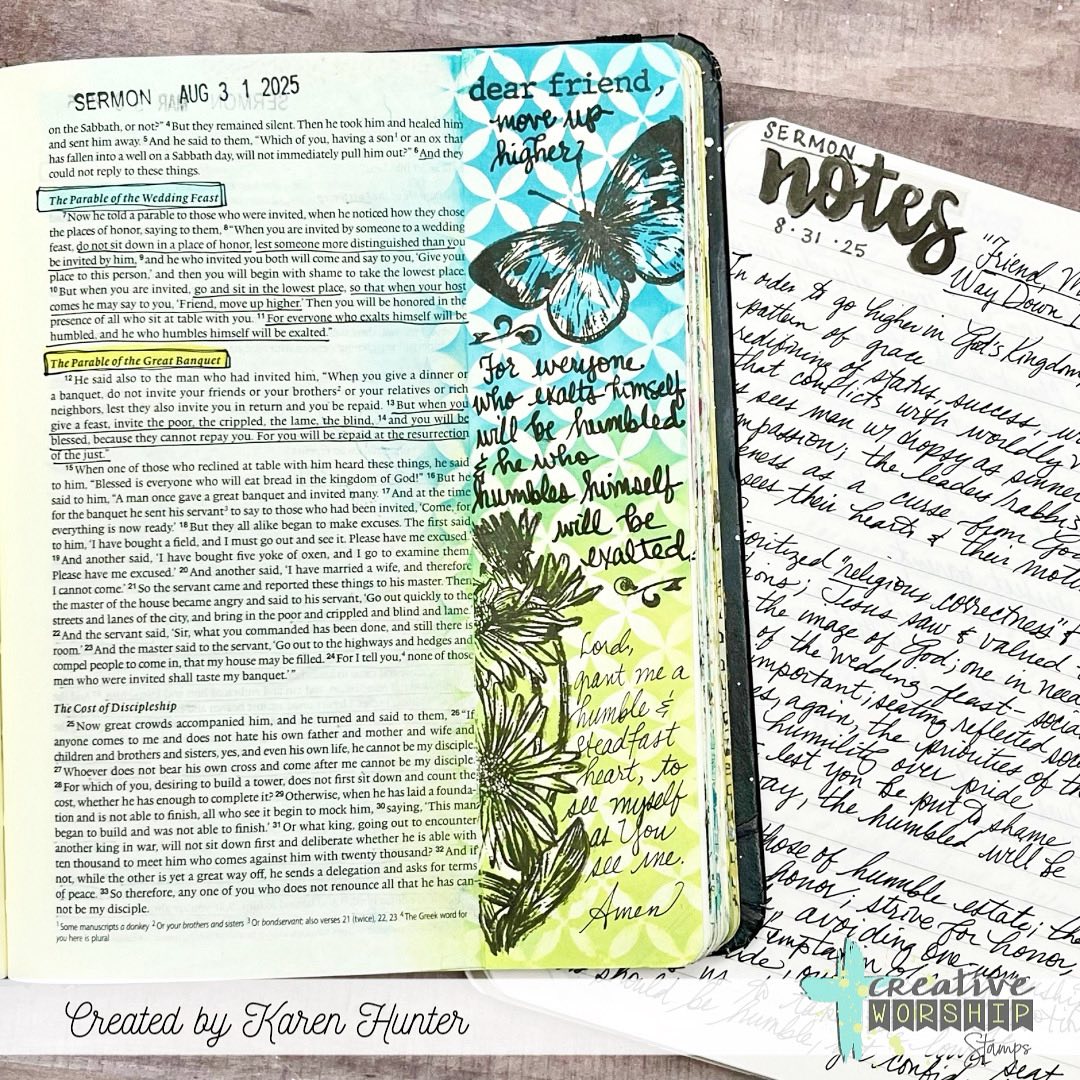 SERMON AUG 3 1 2025
on the Sabbath, or not?” ⁴But they remained silent. Then he took him and healed him
and sent him away. ⁵And he said to them, “Which of you, having a son¹ or an ox that
has fallen into a well on a Sabbath day, will not immediately pull him out?” ⁶And they
could not reply to these things.
The Parable of the Wedding Feast
⁷Now he told a parable to those who were invited, when he noticed how they chose
the places of honor, saying to them, ⁸“When you are invited by someone to a wedding
feast, do not sit down in a place of honor, lest someone more distinguished than you
be invited by him, ⁹and he who invited you both will come and say to you, ‘Give your
place to this person,’ and then you will begin with shame to take the lowest place.
¹⁰But when you are invited, go and sit in the lowest place, so that when your host
comes he may say to you, ‘Friend, move up higher.’ Then you will be honored in the
presence of all who sit at table with you. ¹¹For everyone who exalts himself will be
humbled, and he who humbles himself will be exalted.”
The Parable of the Great Banquet
¹²He said also to the man who had invited him, “When you give a dinner or
a banquet, do not invite your friends or your brothers² or your relatives or rich
neighbors, lest they also invite you in return and you be repaid. ¹³But when you
give a feast, invite the poor, the crippled, the lame, the blind, ¹⁴and you will be
blessed, because they cannot repay you. For you will be repaid at the resurrection
of the just.”
¹⁵When one of those who reclined at table with him heard these things, he said
to him, “Blessed is everyone who will eat bread in the kingdom of God!” ¹⁶But he
said to him, “A man once gave a great banquet and invited many. ¹⁷And at the time
for the banquet he sent his servant³ to say to those who had been invited, ‘Come, for
everything is now ready.’ ¹⁸But they all alike began to make excuses. The first said
to him, ‘I have bought a field, and I must go out and see it. Please have me excused.’
¹⁹And another said, ‘I have bought five yoke of oxen, and I go to examine them.
Please have me excused.’ ²⁰And another said, ‘I have married a wife, and therefore
I cannot come.’ ²¹So the servant came and reported these things to his master. Then
the master of the house became angry and said to his servant, ‘Go out quickly to the
streets and lanes of the city, and bring in the poor and crippled and blind and lame.’
²²And the servant said, ‘Sir, what you commanded has been done, and still there is
room.’ ²³And the master said to the servant, ‘Go out to the highways and hedges and
compel people to come in, that my house may be filled. ²⁴For I tell you,⁴ none of those
men who were invited shall taste my banquet.’”
The Cost of Discipleship
²⁵Now great crowds accompanied him, and he turned and said to them, ²⁶“If
anyone comes to me and does not hate his own father and mother and wife and
children and brothers and sisters, yes, and even his own life, he cannot be my disciple.
²⁷Whoever does not bear his own cross and come after me cannot be my disciple.
²⁸For which of you, desiring to build a tower, does not first sit down and count the
cost, whether he has enough to complete it? ²⁹Otherwise, when he has laid a founda-
tion and is not able to finish, all who see it begin to mock him, ³⁰saying, ‘This man
began to build and was not able to finish.’ ³¹Or what king, going out to encounter
another king in war, will not sit down first and deliberate whether he is able with
ten thousand to meet him who comes against him with twenty thousand? ³²And if
not, while the other is yet a great way off, he sends a delegation and asks for terms
of peace. ³³So therefore, any one of you who does not renounce all that he has can-
not be my disciple.
¹Some manuscripts a donkey ²Or your brothers and sisters ³Or bondservant; also verses 21 (twice), 22, 23 ⁴The Greek word for
you here is plural
dear friend,
move up
higher?
For everyone
who exalts himself
will be humbled
& he who
humbles himself
will be
exalted.
Lord,
grant me a
humble &
steadfast
heart, to
see myself
as You
see me.
Amen
SERMON
notes
8.31.25
"Friend,
Way Down
In order to go higher in God's Kingdom
pattern of grace
redefining of status, success,
that conflicts with worldly
sees man w/ dropsy as sinner
compassion; the leaders/rabbis
as a curse from God
sees their hearts & their
"religious correctness" &
Jesus saw & valued
the image of God; one in need
of the wedding feast - social
important; seating reflected
again, the priorities of the
humility over pride
lest you be put to shame
the humbled will be
those of humble estate; the
honor; strive for honor,
avoiding one
temptation of
should be humble
seat
Created by Karen Hunter
creative
WORSHIP
Stamps